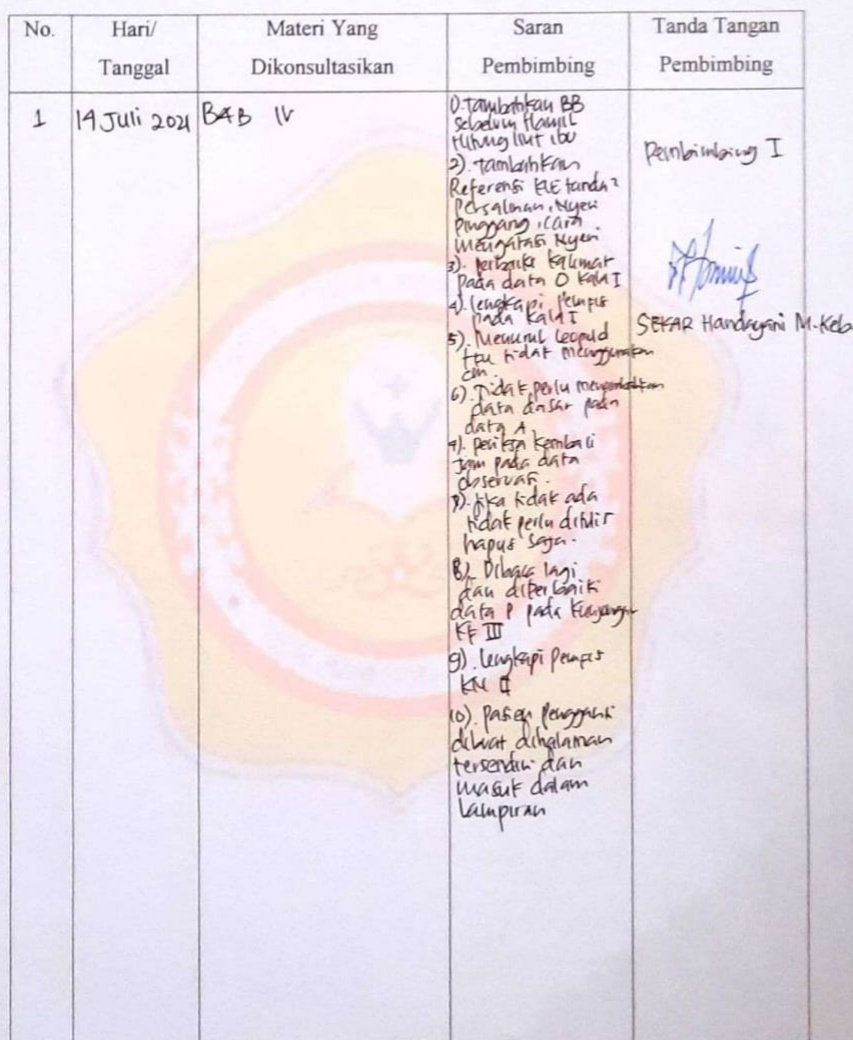 No.
Hari/
Tanggal
Materi Yang
Dikonsultasikan
Saran
Pembimbing
Tanda Tangan
Pembimbing
1
14 Juli 2021
BAB IV
1). tambahkan BB
sebelum Hamil
Hitung IMT ibu
2). tambahkan
Referensi KIE tanda2
Persalinan, Nyeri
Pinggang, cara
mengatasi Nyeri.
3). Perbaiki kalimat
pada data O Kala I
4). lengkapi
pada Kala I
5). Menurut leopold
tfu tidak menggunakan
cm.
6). Tidak perlu menambahkan
data dasar pada
data A.
7). periksa kembali
jam pada data
observasi.
jika tidak ada
tidak perlu ditulis
hapus saja.
8). Dibaca lagi
dan diperbaiki
data P pada Kunjungan
KF III
9). lengkapi
KN II
10). Pasien Pengganti
dibuat dihalaman
tersendiri dan
masuk dalam
Lampiran
Pembimbing I
SEKAR Handayani M-Keb